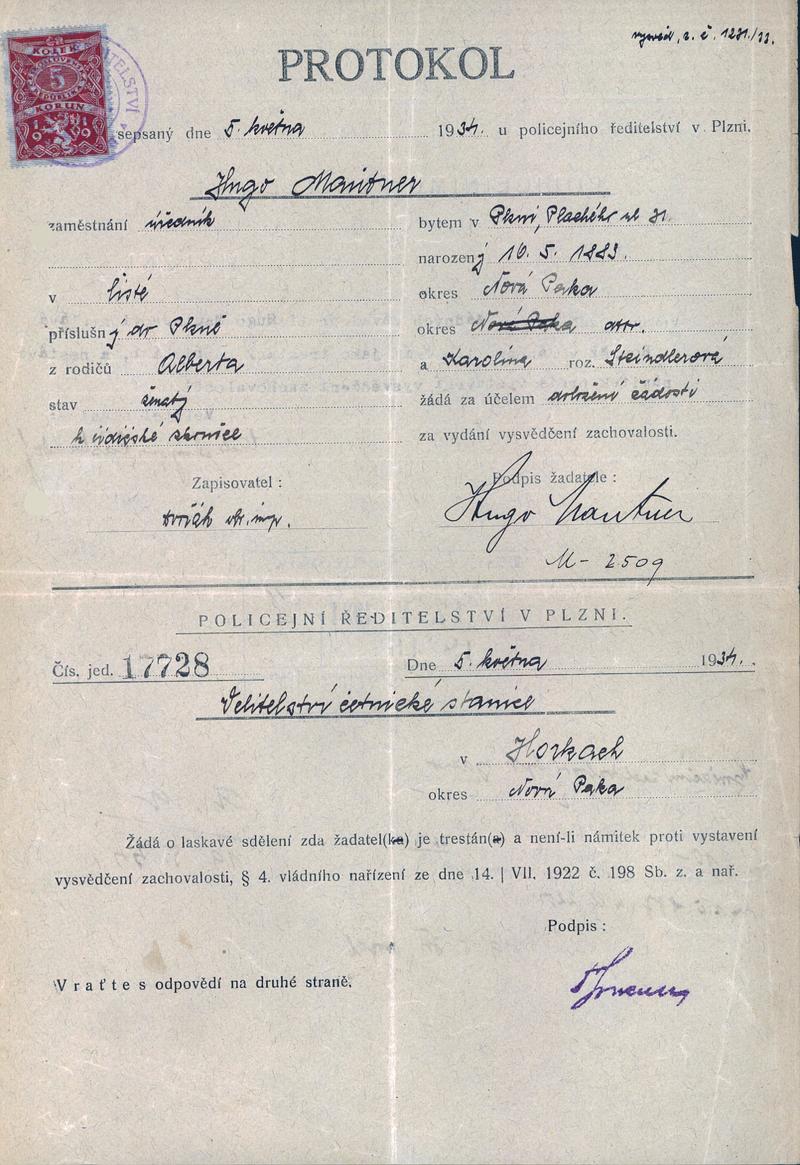 vysvěd. z. č. 1231/33.
KOLEK
5
KORUN
1919
PROTOKOL
sepsaný dne 5. května 1934. u policejního ředitelství v Plzni.
Hugo Mautner
zaměstnání úředník
bytem v Plzni, Plachého ul 31.
narozený 10. 5. 1883.
v Listé okres Nová Paka
příslušný do Plzně okres Nová Paka
z rodičů Alberta a Karolína roz. Steindlerová
stav ženatý žádá za účelem doložení žádosti
za vydání vysvědčení zachovalosti.
Zapisovatel :
Podpis žadatele :
Hugo Mautner
M - 2509
POLICEJNÍ ŘEDITELSTVÍ V PLZNI.
Čís. jed. 17728 Dne 5. května 1934.
Velitelství četnické stanice
v Horkách
okres Nová Paka
Žádá o laskavé sdělení zda žadatel(ka) je trestán(a) a není-li námitek proti vystavení
vysvědčení zachovalosti, § 4. vládního nařízení ze dne 14. | VII. 1922 č. 198 Sb. z. a nař.
Podpis :
Vraťte s odpovědí na druhé straně.